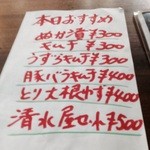 本日おすすめ
ぬか漬¥300
キムチ¥300
うずらキムチ¥300
豚バラキムチ¥400
とり大根ゆず¥400
清水屋セット¥500